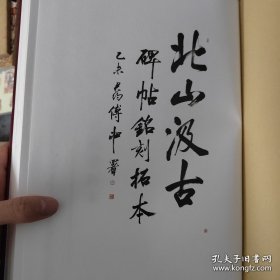 北山汲古
碑帖銘刻拓本
乙未 傅申署
孔夫子旧书网